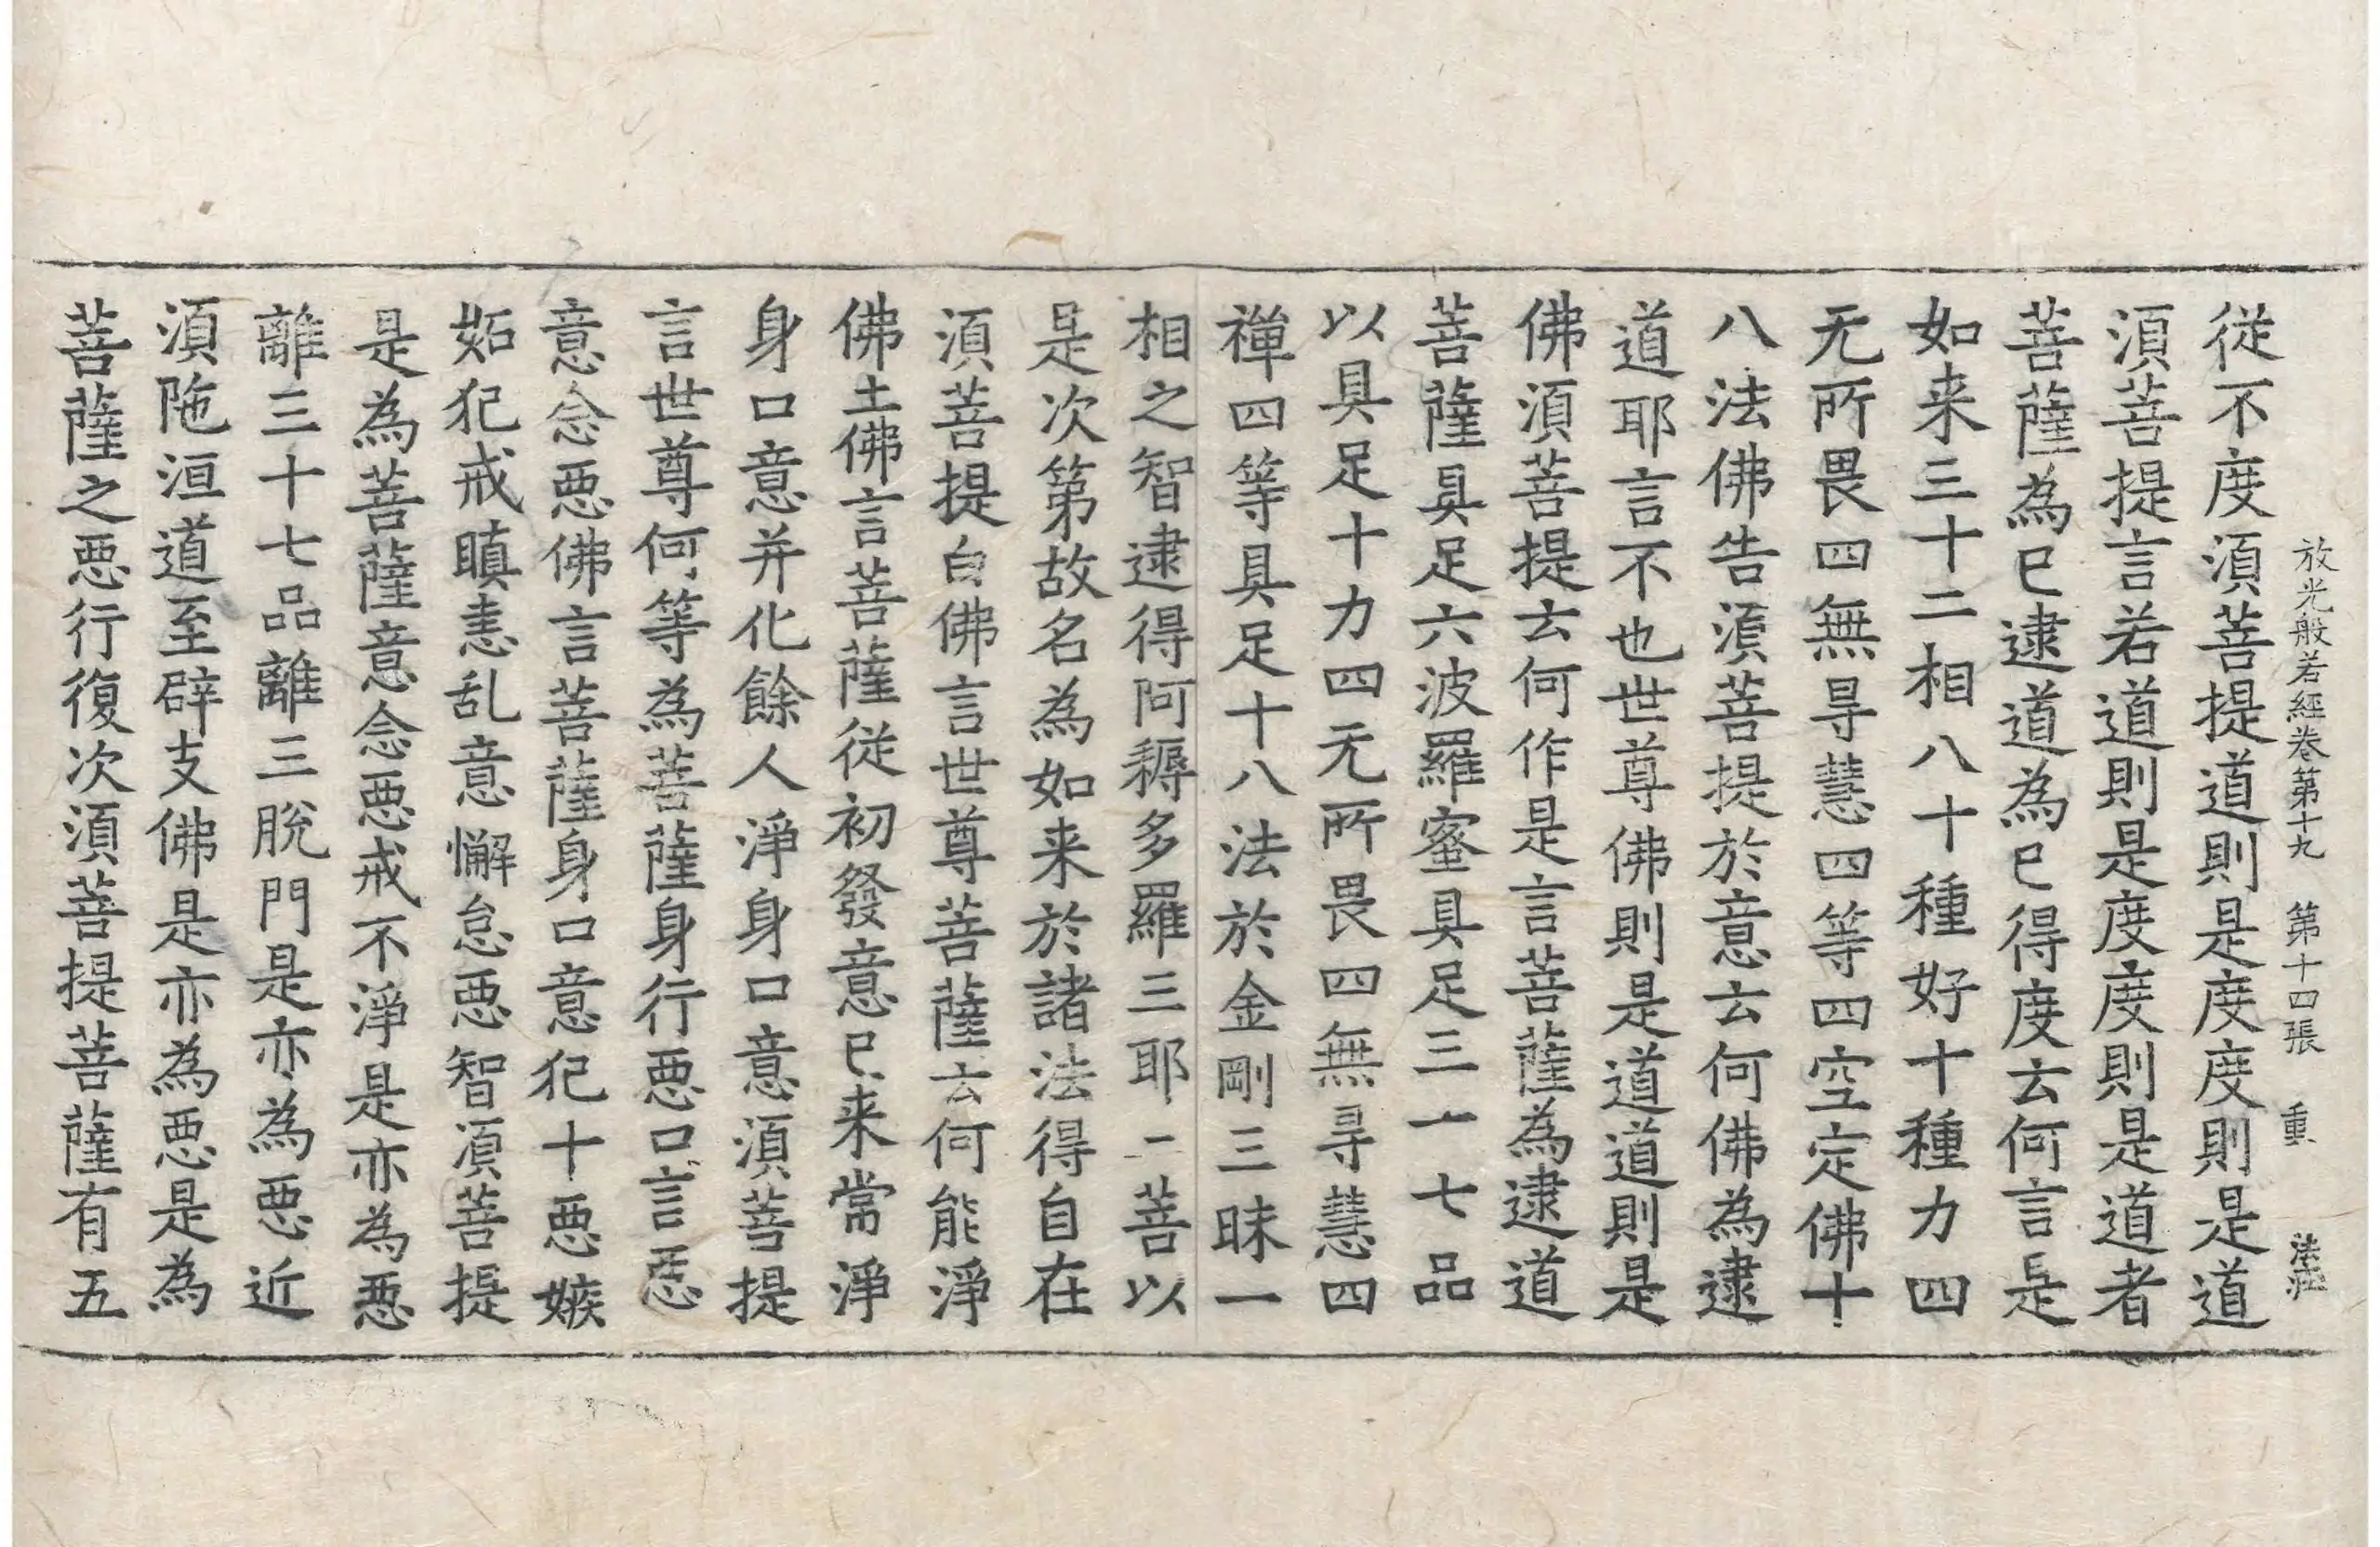 放光般若經卷第十九 第十四張 重 法
從不度須菩提道則是度度則是道
須菩提言若道則是度度則是道者
菩薩為已逮道為已得度云何言是
如来三十二相八十種好十種力四
无所畏四無㝵慧四等四空定佛十
八法佛告須菩提於意云何佛為逮
道耶言不也世尊佛則是道道則是
佛須菩提云何作是言菩薩為逮道
菩薩具足六波羅蜜具足三十七品
以具足十力四无所畏四無㝵慧四
禪四等具足十八法於金剛三昧一
相之智逮得阿耨多羅三耶三菩以
是次第故名為如来於諸法得自在
須菩提白佛言世尊菩薩云何能淨
佛土佛言菩薩從初發意已来常淨
身口意并化餘人淨身口意須菩提
言世尊何等為菩薩身行惡口言惡
意念惡佛言菩薩身口意犯十惡嫉
妬犯戒瞋恚乱意懈怠惡智須菩提
是為菩薩意念惡戒不淨是亦為惡
離三十七品離三脫門是亦為惡近
須陁洹道至辟支佛是亦為惡是為
菩薩之惡行復次須菩提菩薩有五